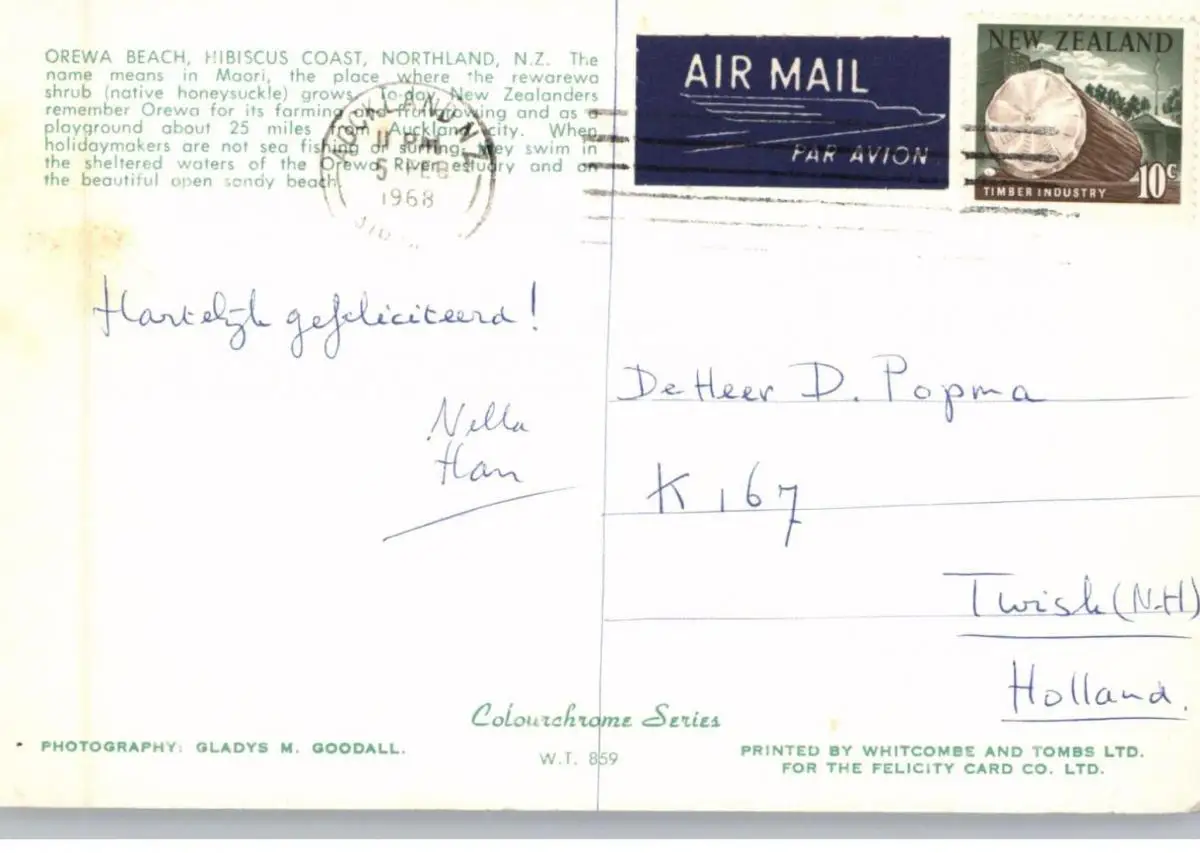 OREWA BEACH, HIBISCUS COAST, NORTHLAND, N.Z. The
name means in Maori, the place where the rewarewa
shrub (native honeysuckle) grows. To-day New Zealanders
remember Orewa for its farming and fruit growing and as a
playground about 25 miles from Auckland city. When
holidaymakers are not sea fishing or surfing, they swim in
the sheltered waters of the Orewa River estuary and on
the beautiful open sandy beach.
AUCKLAND N.Z.
5 FEB
1968
AIR MAIL
PAR AVION
NEW ZEALAND
TIMBER INDUSTRY
10c
Hartelijk gefeliciteerd!
Nella
Han
De Heer D. Popma
K 167
Twisk (N-H)
Holland.
Colourchrome Series
W.T. 859
PHOTOGRAPHY: GLADYS M. GOODALL.
PRINTED BY WHITCOMBE AND TOMBS LTD.
FOR THE FELICITY CARD CO. LTD.